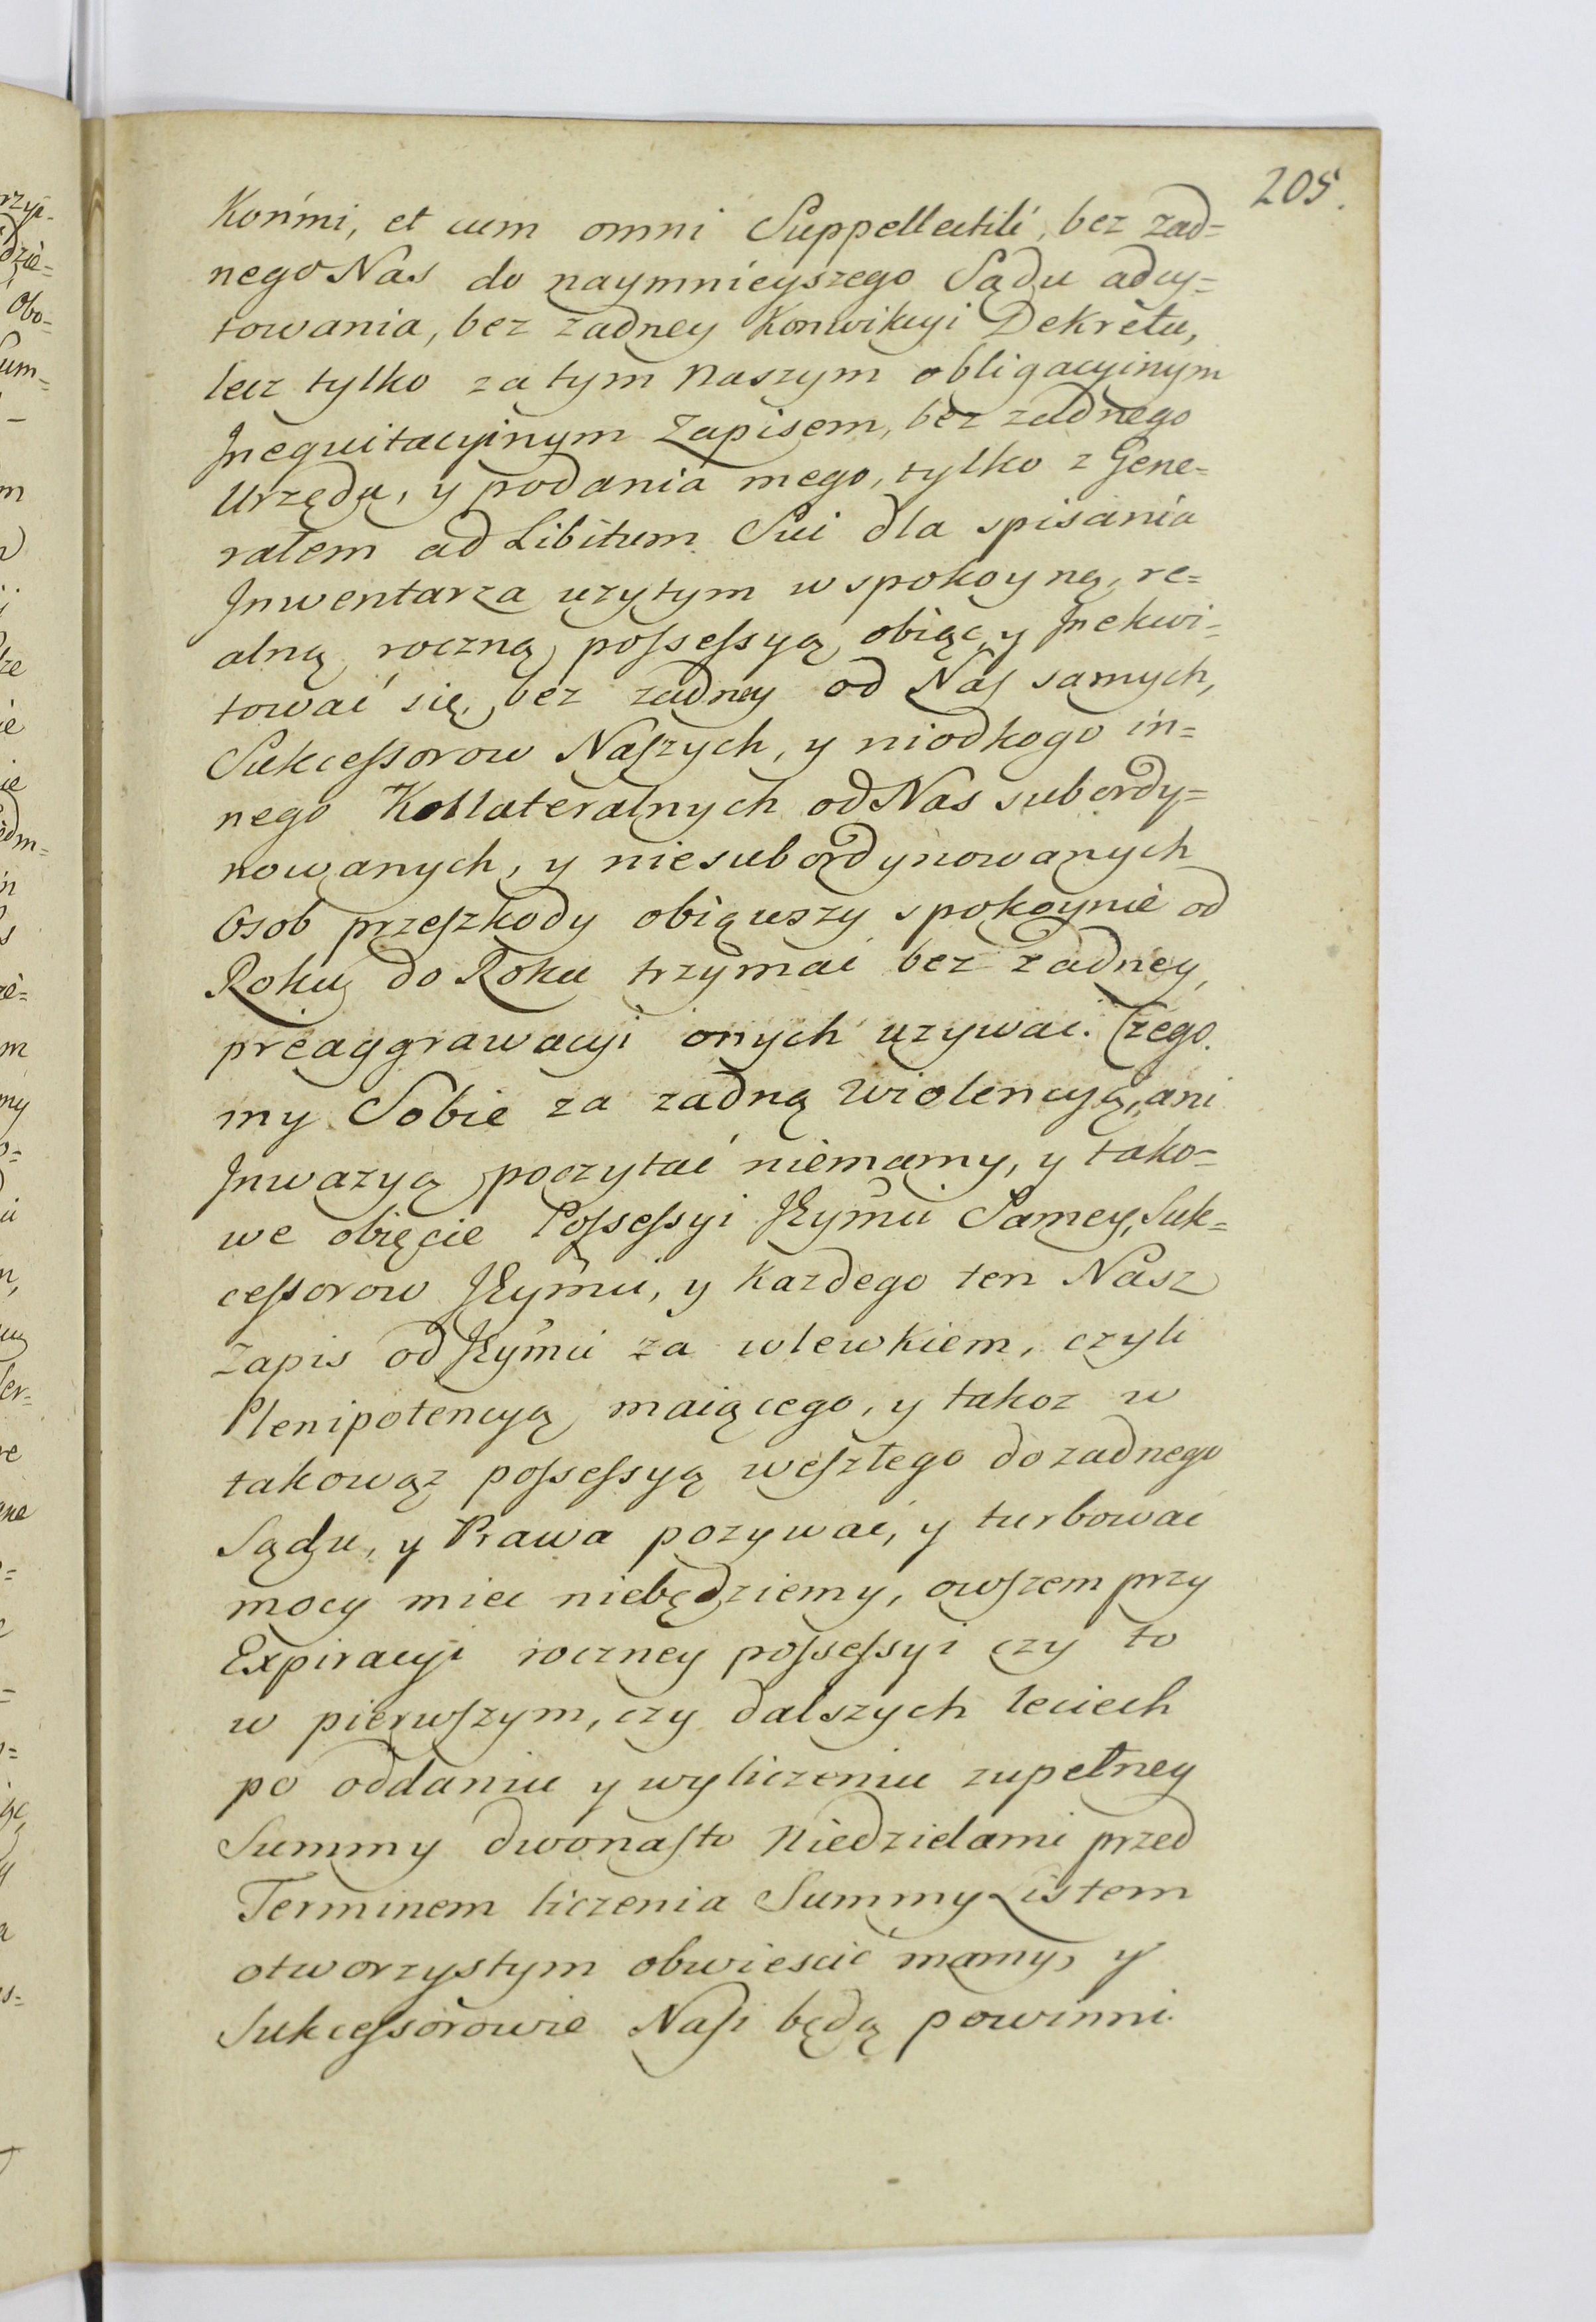 205.
Końmi, et cum omni Suppellectili, bez zad=
nego Nas do naymnieyszego Sądu adcy=
towania, bez zadney Konwikcyi Dekretu,
lecz tylko za tym naszym obligacyinym
Inequitacyinym Zapisem, bez zadnego
Urzędu, y podania mego, tylko z Gene=
rałem ad Libitum Sui dla spisania
Inwentarza uzytym w spokoyną, re=
alną, roczną, possessyą obiąć, y Inekwi=
tować się, bez zadney od Nas samych,
Sukcessorow Naszych, y niodkogo in=
nego Kollateralnych od Nas subordy=
nowanych, y niesubordynowanych
Osob przeszkody obiąwszy spokoynie od
Roku do Roku trzymać bez zadney,
preaggrawacyi onych uzywac. Czego
my Sobie za zadną Wiolencyą, ani
Inwazyą poczytać niemamy, y tako=
we obięcie Possessyi JEymći Samey, Suk=
cessorow JEymći, y kazdego ten Nasz
Zapis od JEymći za wlewkiem, czyli
Plenipotencyą maiącego, y takoz w
takowąz possessyą weszłego do zadnego
Sądzu, y Prawa pozywać, y turbować
mocy miec niebędziemy, owszem przy
Expiracyi roczney possessyi czy to
w pierwszym, czy dalszych leciech
po oddaniu y wyliczeniu zupełney
Summy dwonasto Niedzielami przed
Terminem liczenia Summy Listem
otworzystym obwiescić mamy, y
Sukcessorowie Nasi będą powinni.